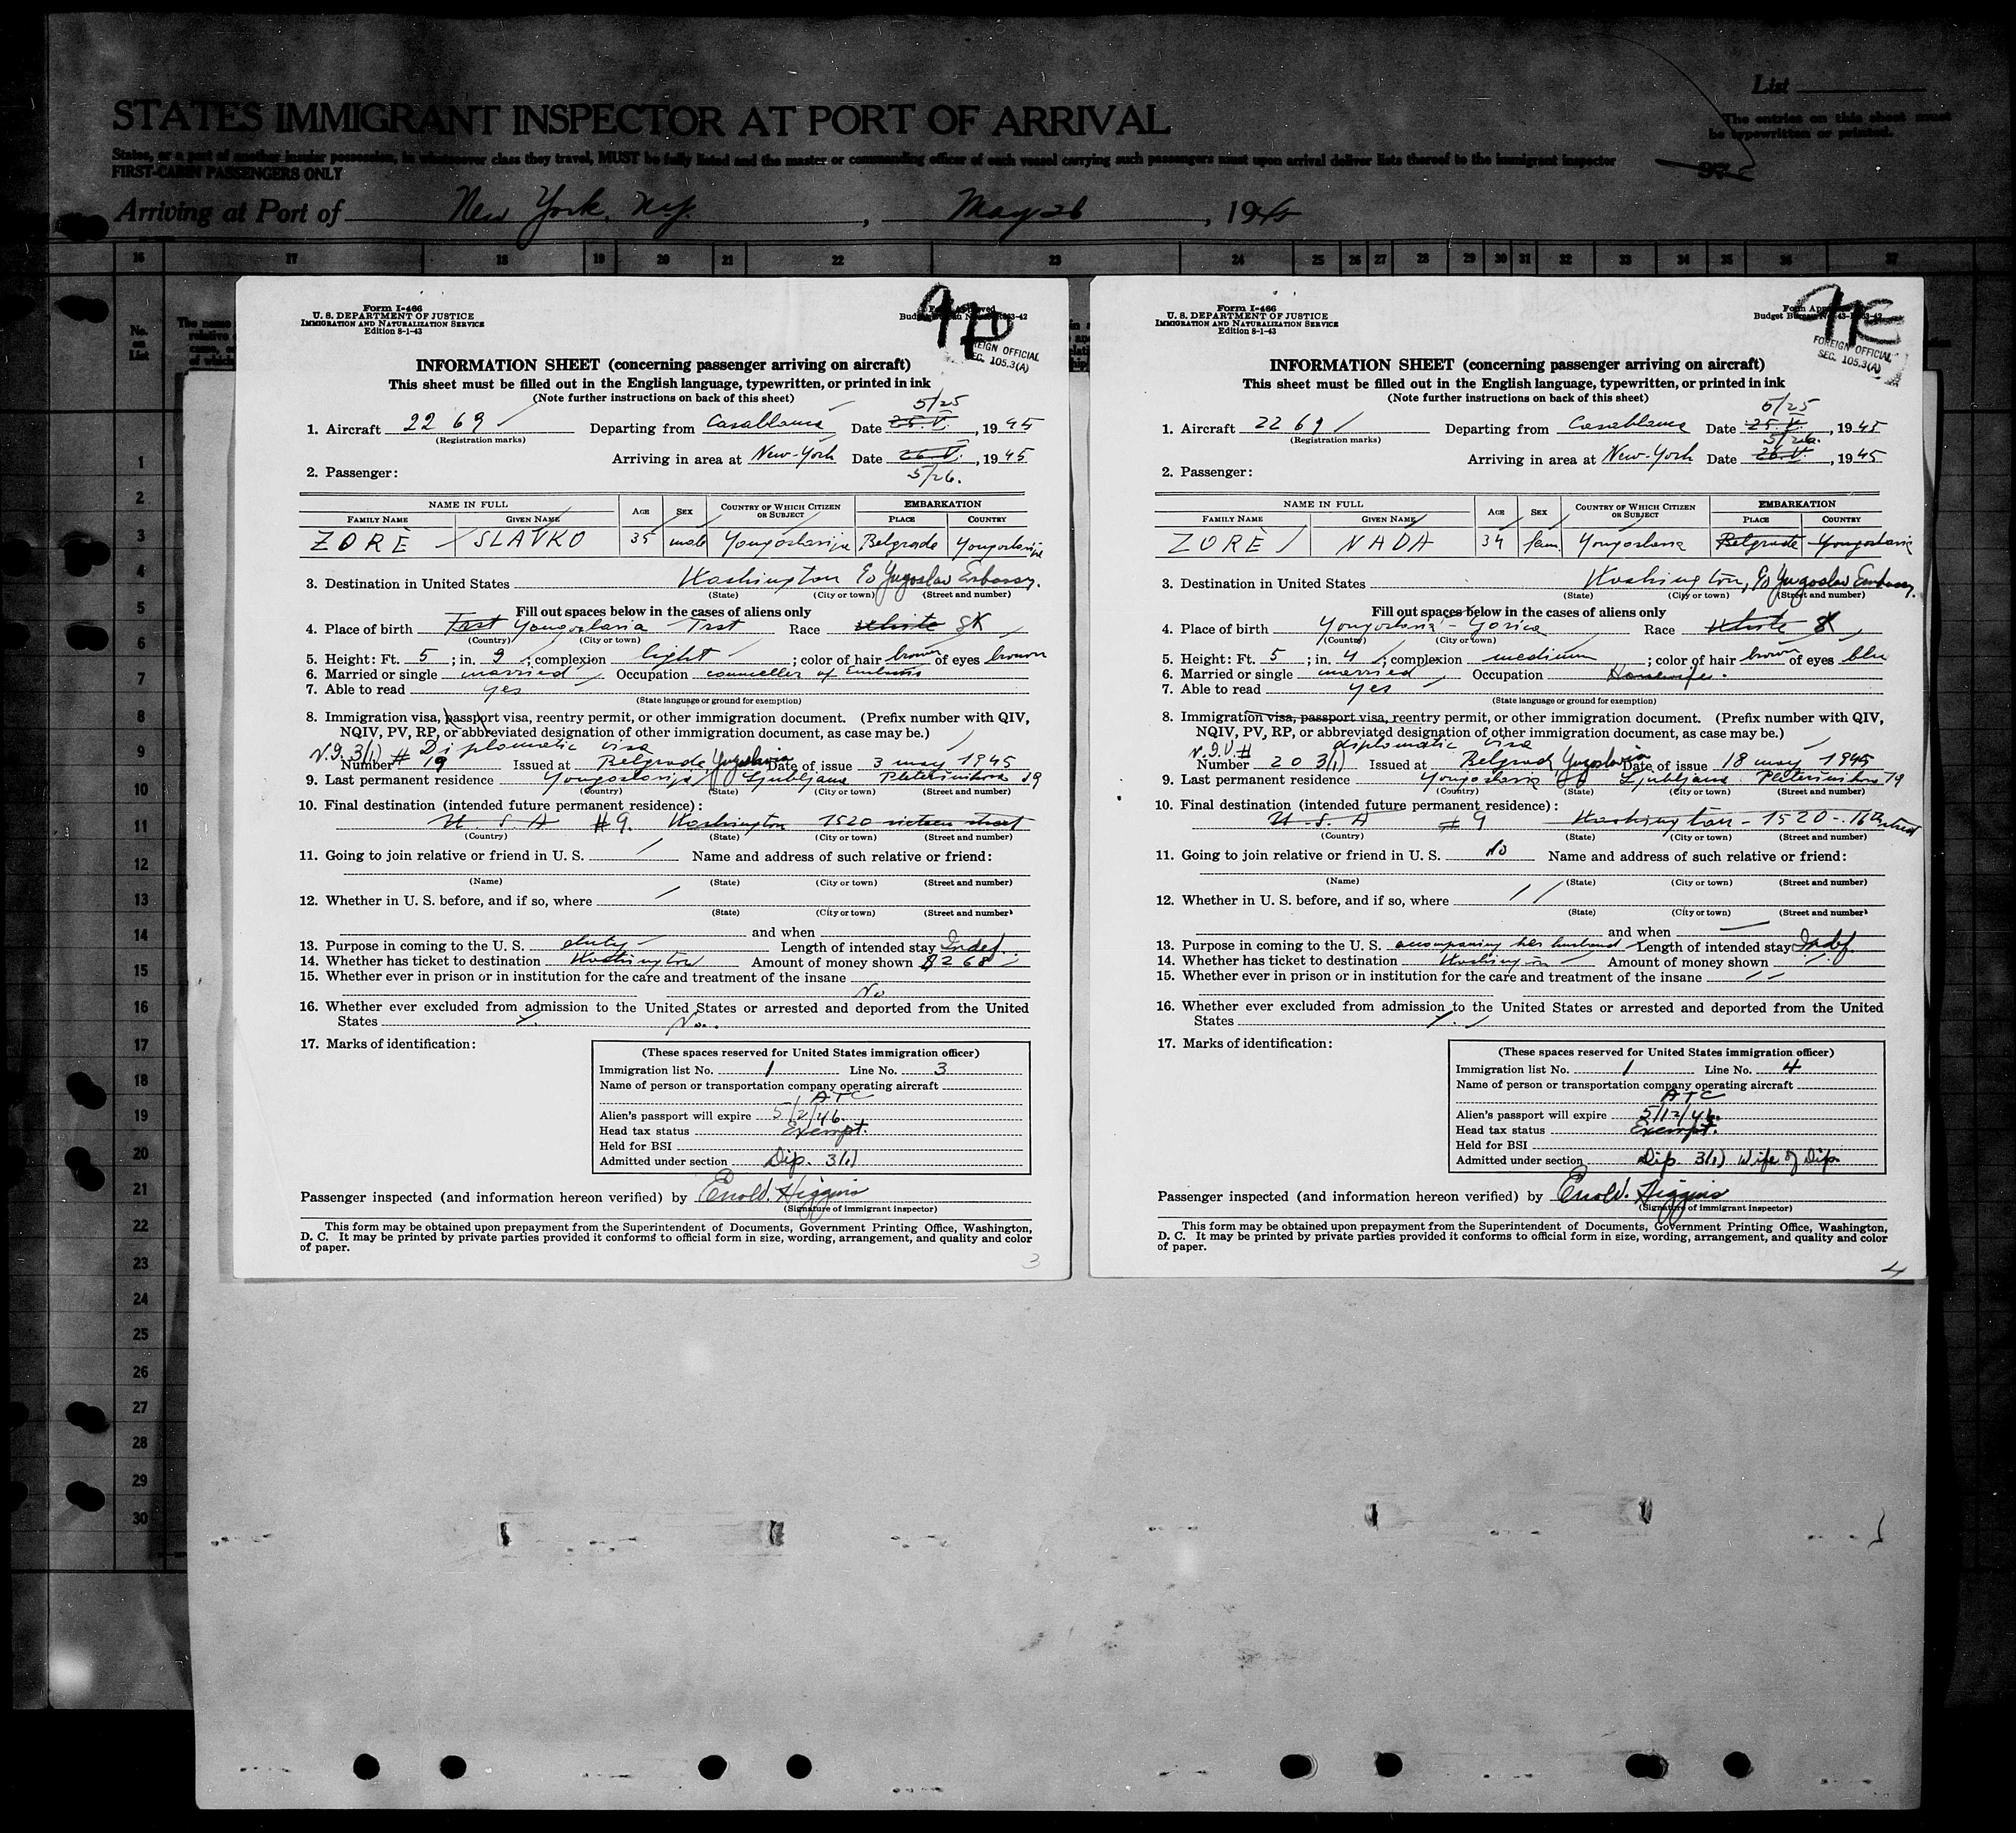 List
STATES IMMIGRANT INSPECTOR AT PORT OF ARRIVAL
The entries on this sheet must
be typewritten or printed.
States, or a part of another insular possession, in whatsoever class they travel, MUST be fully listed and the master or commanding officer of each vessel carrying such passengers must upon arrival deliver lists thereof to the immigrant inspector
FIRST-CABIN PASSENGERS ONLY
Arriving at Port of New York, N.Y., May 26, 1945
16 17 18 19 20 21 22 23 24 25 26 27 28 29 30 31 32 33 34 35 36 37
No. on List
1
2
3
4
5
6
7
8
9
10
11
12
13
14
15
16
17
18
19
20
21
22
23
24
25
26
27
28
29
30
Form I-466
U. S. DEPARTMENT OF JUSTICE
IMMIGRATION AND NATURALIZATION SERVICE
Edition 8-1-43
97D
FOREIGN OFFICIAL
SEC. 105.3(A)
INFORMATION SHEET (concerning passenger arriving on aircraft)
This sheet must be filled out in the English language, typewritten, or printed in ink
(Note further instructions on back of this sheet)
5/25
1. Aircraft 2269 Departing from Casablanca Date 25 V. , 1945
(Registration marks)
Arriving in area at New-York Date 26 V. , 1945
2. Passenger: 5/26.
NAME IN FULL AGE SEX COUNTRY OF WHICH CITIZEN OR SUBJECT EMBARKATION
FAMILY NAME GIVEN NAME PLACE COUNTRY
ZORÈ SLAVKO 35 male Yougoslavija Belgrade Yougoslavija
3. Destination in United States Washington c/o Yugoslav Embassy.
(State) (City or town) (Street and number)
Fill out spaces below in the cases of aliens only
4. Place of birth Trst Yougoslavia Trst Race White SK
(Country) (City or town)
5. Height: Ft. 5 ; in. 9 ; complexion light ; color of hair brown of eyes brown
6. Married or single married Occupation counceller of
7. Able to read yes
(State language or ground for exemption)
8. Immigration visa, passport visa, reentry permit, or other immigration document. (Prefix number with QIV,
NQIV, PV, RP, or abbreviated designation of other immigration document, as case may be.)
3(1) # Diplomatic visa
Number 19 Issued at Belgrade Yugoslavia Date of issue 3 may 1945
9. Last permanent residence Yougoslavija Ljubljana Pleteršnikova 19
(Country) (State) (City or town) (Street and number)
10. Final destination (intended future permanent residence):
U. S. A #9. Washington 1520 sixteen street
(Country) (State) (City or town) (Street and number)
11. Going to join relative or friend in U. S. / Name and address of such relative or friend:
(Name) (State) (City or town) (Street and number)
12. Whether in U. S. before, and if so, where /
(State) (City or town) (Street and number)
and when
13. Purpose in coming to the U. S. duty Length of intended stay Indef.
14. Whether has ticket to destination Washington Amount of money shown $268
15. Whether ever in prison or in institution for the care and treatment of the insane
No
16. Whether ever excluded from admission to the United States or arrested and deported from the United
States No.
17. Marks of identification:
(These spaces reserved for United States immigration officer)
Immigration list No. 1 Line No. 3
Name of person or transportation company operating aircraft
ATC
Alien's passport will expire 5/2/46.
Head tax status Exempt.
Held for BSI
Admitted under section Dip. 3(1)
Passenger inspected (and information hereon verified) by Enold. Higgins
(Signature of immigrant inspector)
This form may be obtained upon prepayment from the Superintendent of Documents, Government Printing Office, Washington,
D. C. It may be printed by private parties provided it conforms to official form in size, wording, arrangement, and quality and color
of paper.
3
Form I-466
U. S. DEPARTMENT OF JUSTICE
IMMIGRATION AND NATURALIZATION SERVICE
Edition 8-1-43
97E
FOREIGN OFFICIAL
SEC. 105.3(A)
INFORMATION SHEET (concerning passenger arriving on aircraft)
This sheet must be filled out in the English language, typewritten, or printed in ink
(Note further instructions on back of this sheet)
5/25
1. Aircraft 2269 Departing from Casablanca Date 25 V. , 1945
(Registration marks) 5/26.
Arriving in area at New-York Date 26 V. , 1945
2. Passenger:
NAME IN FULL AGE SEX COUNTRY OF WHICH CITIZEN OR SUBJECT EMBARKATION
FAMILY NAME GIVEN NAME PLACE COUNTRY
ZORÈ NADA 34 fem. Yougoslavia Belgrade Yougoslavia
3. Destination in United States Washington, c/o Yugoslav Embassy.
(State) (City or town) (Street and number)
Fill out spaces below in the cases of aliens only
4. Place of birth Yougoslavia - Gorica Race White SK
(Country) (City or town)
5. Height: Ft. 5 ; in. 4 ; complexion medium ; color of hair brown of eyes blu
6. Married or single married Occupation Housewife.
7. Able to read yes
(State language or ground for exemption)
8. Immigration visa, passport visa, reentry permit, or other immigration document. (Prefix number with QIV,
NQIV, PV, RP, or abbreviated designation of other immigration document, as case may be.)
# diplomatic visa
Number 20 3(1) Issued at Belgrad Yugoslavia Date of issue 18 may 1945
9. Last permanent residence Yougoslavia Ljubljana Pleteršnikova 19
(Country) (State) (City or town) (Street and number)
10. Final destination (intended future permanent residence):
U. S. A #9 Washington - 1520 - 16th street
(Country) (State) (City or town) (Street and number)
11. Going to join relative or friend in U. S. No Name and address of such relative or friend:
(Name) (State) (City or town) (Street and number)
12. Whether in U. S. before, and if so, where / /
(State) (City or town) (Street and number)
and when
13. Purpose in coming to the U. S. accompaning her husband Length of intended stay Indef.
14. Whether has ticket to destination Washington Amount of money shown
15. Whether ever in prison or in institution for the care and treatment of the insane
16. Whether ever excluded from admission to the United States or arrested and deported from the United
States
17. Marks of identification:
(These spaces reserved for United States immigration officer)
Immigration list No. 1 Line No. 4
Name of person or transportation company operating aircraft
ATC
Alien's passport will expire 5/12/46.
Head tax status Exempt.
Held for BSI
Admitted under section Dip. 3(1) Wife of Dip.
Passenger inspected (and information hereon verified) by Enold. Higgins
(Signature of immigrant inspector)
This form may be obtained upon prepayment from the Superintendent of Documents, Government Printing Office, Washington,
D. C. It may be printed by private parties provided it conforms to official form in size, wording, arrangement, and quality and color
of paper.
4